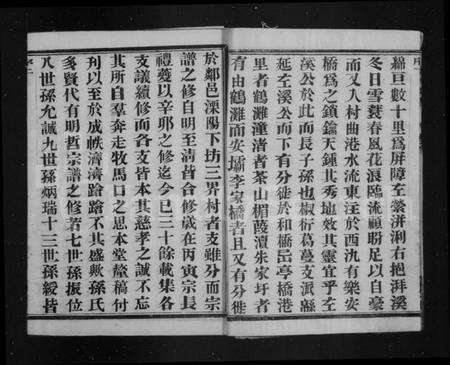 綿亘數十里爲屏障至縈洴浰右挹湃溪
冬日雪蓑春風花浪臨流顧盼足以自豪
而又入村曲港水流東注於西氿有樂安
橋爲之鎮鑰天鍾其秀地效其靈宜乎至
溪公於此而長子孫也椒衍蔦蔓支派緜
延至溪公而下有分徙於和橋邑亭橋港
里者鶴灘潼渚者茶山楣蔭瀆朱家圩者
有由鶴灘而安壩李家橋者且又有分徙
於鄰邑溧陽下坊三界村者支雖分而宗
譜之修自明至清皆合修歲在丙寅宗長
禮蘷以辛卯之修迄今已三十餘載集各
支議續修而各支皆本其慈孝之誠不忘
其所自羣奔走牧馬口之思本堂釐稿付
刊以至於成帙濟濟蹌蹌不其盛歟孫氏
多賢代有明哲宗譜之修若七世孫振位
八世孫允誠九世孫炳瑞十三世孫綬皆